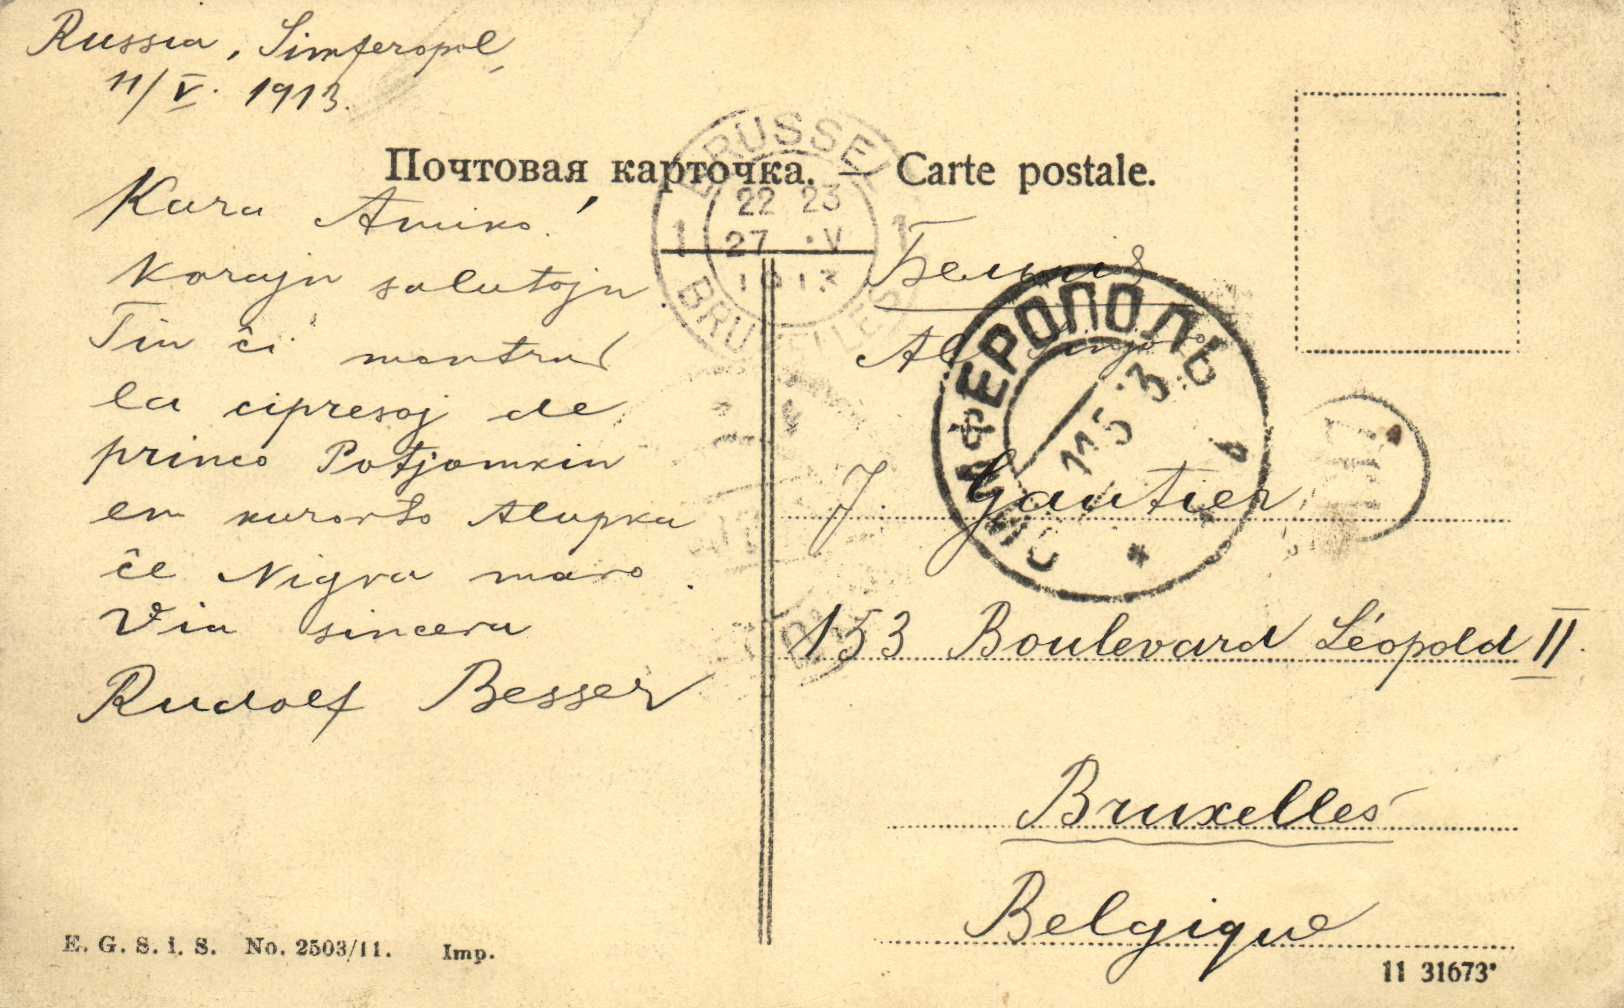 Russia, Simferopol,
11/V. 1913.
Почтовая карточка. — Carte postale.
Kara Amiko!
Korajn salutojn.
Tiu ĉi montras
la cipresoj de
princo Potjomkin
en kurorto Alupka
ĉe Nigra maro.
Via sincera
Rudolf Besser
BRUSSEL
22 23
1 27 ·V 1
1913
BRUXELLES
Бельгия
Al sinjoro
СИМФЕРОПОЛЬ
11 5 13
J. Gautier
153 Boulevard Léopold II.
Bruxelles
Belgique
E. G. S. i. S. No. 2503/11. Imp.
11 31673